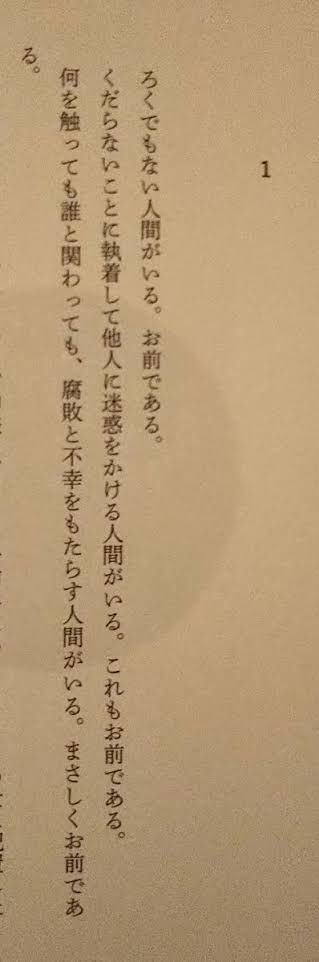 1
ろくでもない人間がいる。お前である。
くだらないことに執着して他人に迷惑をかける人間がいる。これもお前である。
何を触っても誰と関わっても、腐敗と不幸をもたらす人間がいる。まさしくお前であ
る。